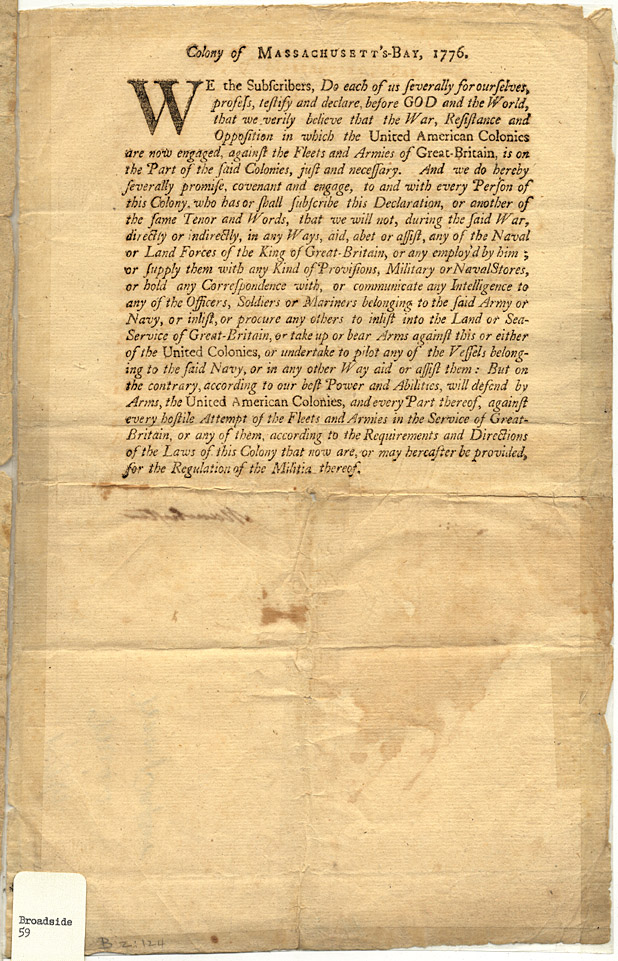 Colony of MASSACHUSETT's-BAY, 1776.
WE the Subſcribers, Do each of us ſeverally for ourſelves,
profeſs, teſtify and declare, before GOD and the World,
that we verily believe that the War, Reſiſtance and
Oppoſition in which the United American Colonies
are now engaged, againſt the Fleets and Armies of Great-Britain, is on
the Part of the ſaid Colonies, juſt and neceſſary. And we do hereby
ſeverally promiſe, covenant and engage, to and with every Perſon of
this Colony, who has or ſhall ſubſcribe this Declaration, or another of
the ſame Tenor and Words, that we will not, during the ſaid War,
directly or indirectly, in any Ways, aid, abet or aſſiſt, any of the Naval
or Land Forces of the King of Great-Britain, or any employ'd by him ;
or ſupply them with any Kind of Proviſions, Military or Naval Stores,
or hold any Correſpondence with, or communicate any Intelligence to
any of the Officers, Soldiers or Mariners belonging to the ſaid Army or
Navy, or inliſt, or procure any others to inliſt into the Land or Sea-
Service of Great-Britain, or take up or bear Arms againſt this or either
of the United Colonies, or undertake to pilot any of the Veſſels belong-
ing to the ſaid Navy, or in any other Way aid or aſſiſt them : But on
the contrary, according to our beſt Power and Abilities, will defend by
Arms, the United American Colonies, and every Part thereof, againſt
every hoſtile Attempt of the Fleets and Armies in the Service of Great-
Britain, or any of them, according to the Requirements and Directions
of the Laws of this Colony that now are, or may hereafter be provided,
for the Regulation of the Militia thereof.
Broadside
59
B 2:124